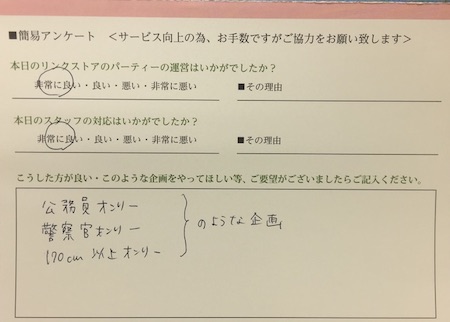 ■簡易アンケート <サービス向上の為、お手数ですがご協力をお願い致します>
本日のリンクストアのパーティーの運営はいかがでしたか？
非常に良い・良い・悪い・非常に悪い ■その理由
本日のスタッフの対応はいかがでしたか？
非常に良い・良い・悪い・非常に悪い ■その理由
こうした方が良い・このような企画をやってほしい等、ご要望がございましたらご記入ください。
公務員オンリー
警察官オンリー のような企画
170cm以上オンリー